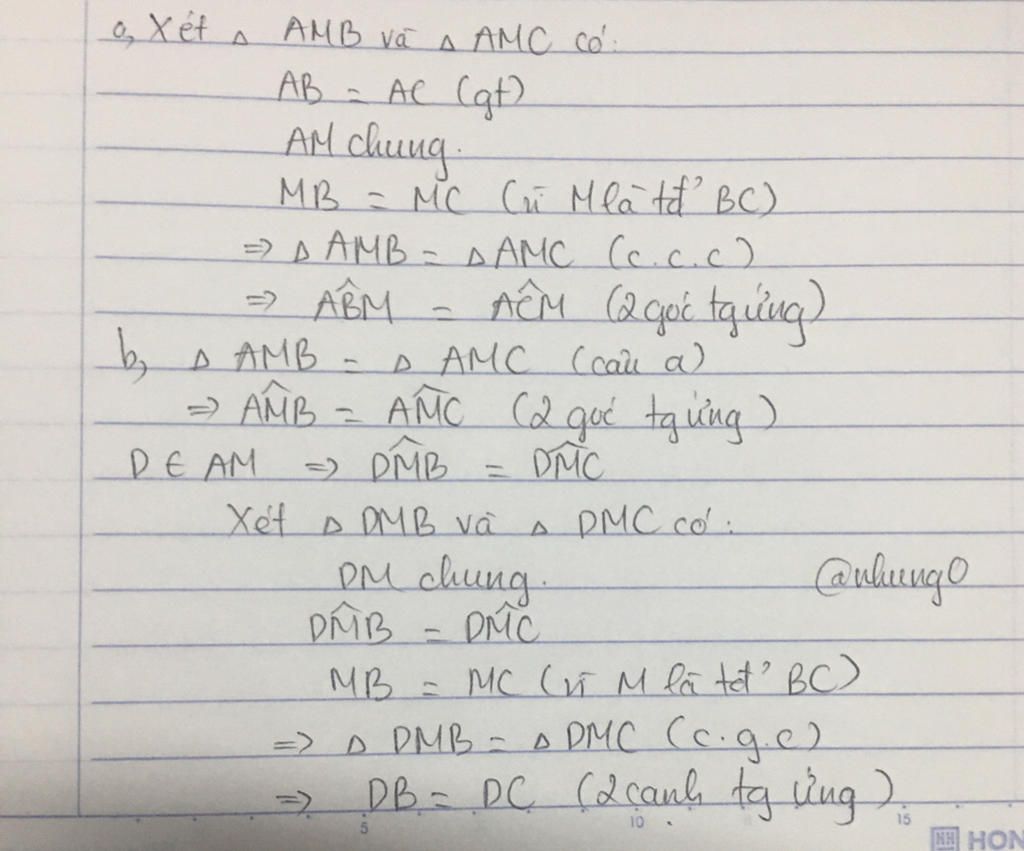 a, Xét △ AMB và △ AMC có:
AB = AC (gt)
AM chung.
MB = MC (vì M là tđ' BC)
=> △ AMB = △ AMC (c.c.c)
=> AB̂M = AĈM (2 góc tg ứng)
b, △ AMB = △ AMC (câu a)
=> AM̂B = AM̂C (2 góc tg ứng)
D ∈ AM => DM̂B = DM̂C
Xét △ DMB và △ DMC có:
DM chung.
@nhung0
DM̂B = DM̂C
MB = MC (vì M là tđ' BC)
=> △ DMB = △ DMC (c.g.c)
=> DB = DC (2 cạnh tg ứng)
5 10 15
HON